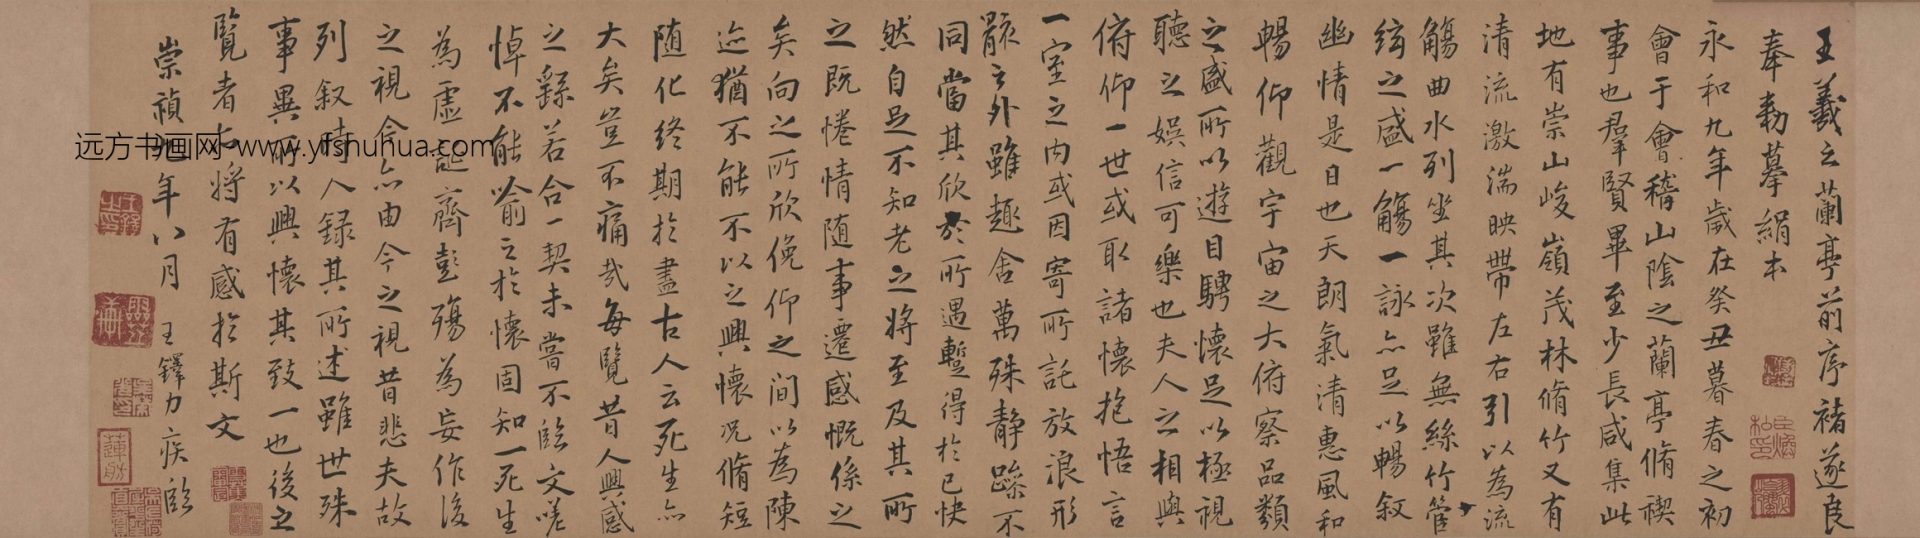 王羲之蘭亭前序褚遂良
奉勅摹絹本
永和九年歲在癸丑暮春之初
會于會稽山陰之蘭亭脩禊
事也羣賢畢至少長咸集此
地有崇山峻嶺茂林脩竹又有
清流激湍映帶左右引以為流
觴曲水列坐其次雖無絲竹管
絃之盛一觴一詠亦足以暢敘
幽情是日也天朗氣清惠風和
暢仰觀宇宙之大俯察品類
之盛所以遊目騁懷足以極視
聽之娛信可樂也夫人之相與
俯仰一世或取諸懷抱悟言
一室之內或因寄所託放浪形
骸之外雖趣舍萬殊靜躁不
同當其欣於所遇蹔得於己快
然自足不知老之將至及其所
之既惓情隨事遷感慨係之
矣向之所欣俛仰之間以為陳
迹猶不能不以之興懷況脩短
隨化終期於盡古人云死生亦
大矣豈不痛哉每覽昔人興感
之繇若合一契未嘗不臨文嗟
悼不能喻之於懷固知一死生
為虛誕齊彭殤為妄作後
之視今亦由今之視昔悲夫故
列敘時人錄其所述雖世殊
事異所以興懷其致一也後之
覽者亦將有感於斯文
崇禎年八月 王鐸力疾臨
蓮舫
远方书画网 www.yfshuhua.com